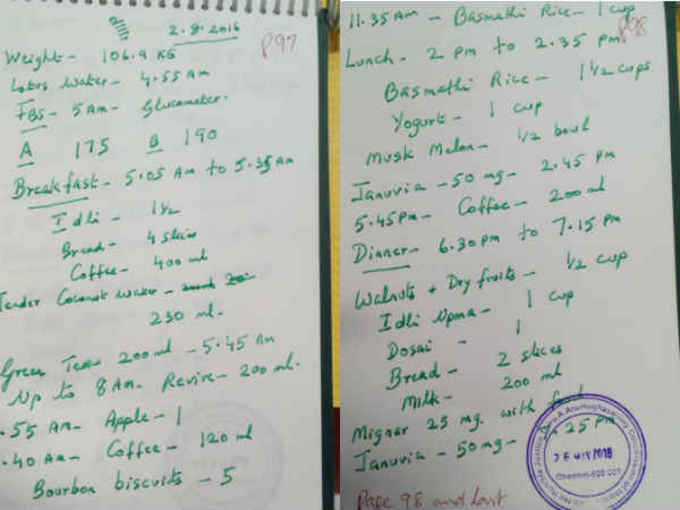 2
2.8.2016
P97
Weight - 106.9 KG
Lotus Water - 4.55 AM
FBS - 5 AM - Glucometer.
A 175 B 190
Breakfast - 5.05 AM to 5.35 AM
Idli - 1 1/2
Bread - 4 slices
Coffee - 400 ml
Tender Coconut Water -
230 ml.
Green Tea 200 ml - 5.45 AM
Up to 8 AM. Revive - 200 ml.
.55 AM - Apple - 1
.40 AM - Coffee - 120 ml
Bourbon biscuits - 5
11.35 AM - Basmathi Rice - 1 cup
P98
Lunch - 2 PM to 2.35 PM
Basmathi Rice - 1 1/2 cups
Yogurt - 1 cup
Musk Melon - 1/2 bowl
Januvia - 50 mg - 2.45 PM
5.45 PM - Coffee - 200 ml
Dinner - 6.30 PM to 7.15 PM
Walnuts + Dry fruits - 1/2 cup
Idli Upma - 1 cup
Dosai - 1
Bread - 2 slices
Milk - 200 ml
Mignar 25 mg. with food
Januvia - 50 mg - 7.25 PM
Page 98 and last
Justice A. Arumughaswamy Commission of
2018
Chennai-600 005